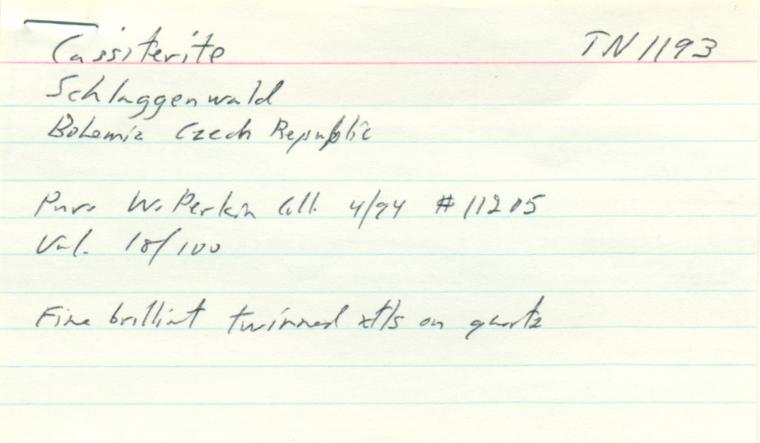 Cassiterite TN1193
Schlaggenwald
Bohemia Czech Republic
Purs W. Perkin Coll. 4/94 #11205
Val. 18/100
Fine brilliant twinned xtls on quartz